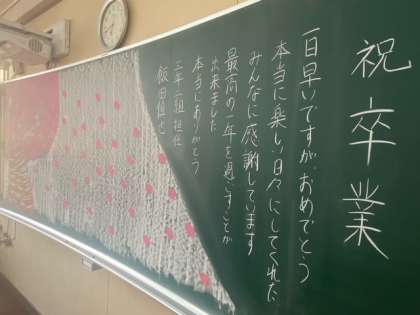 祝卒業
一日早いですが、おめでとう
本当に楽しい日々にしてくれた
みんなに感謝しています
最高の一年を過ごすことが
出来ました
本当にありがとう
三年二組 担任
飯田